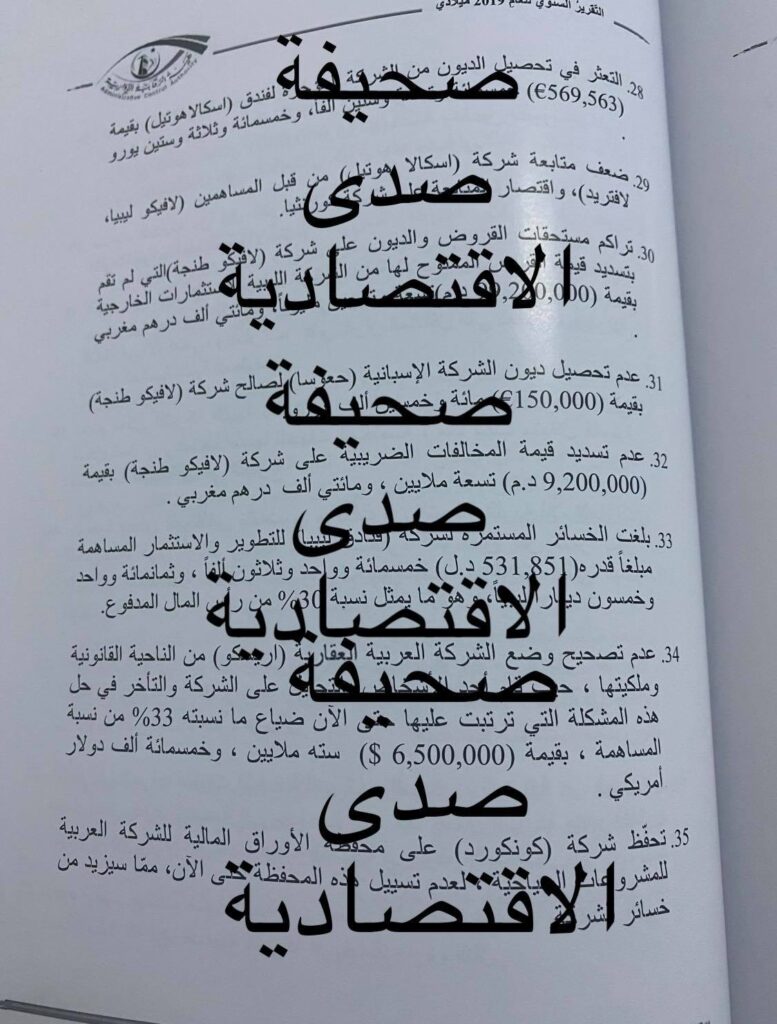 التقرير السنوي للعام 2019 ميلادي
Administrative Control Authority
28. التعثر في تحصيل الديون من الشركة لفندق (اسكالاهوتيل) بقيمة
(569,563€) وستين ألفاً، وخمسمائة وثلاثة وستين يورو
.
29. ضعف متابعة شركة (اسكالا هوتيل) من قبل المساهمين (لافيكو ليبيا،
لافتريد)، واقتصار على شركة
30. تراكم مستحقات القروض والديون على شركة (لافيكو طنجة)التي لم تقم
بتسديد قيمة الممنوح لها من الليبية للاستثمارات الخارجية
بقيمة ومائتي ألف درهم مغربي
.
31. عدم تحصيل ديون الشركة الإسبانية (حعوسا) لصالح شركة (لافيكو طنجة)
بقيمة (150,000€) مائة وخمسين ألف
32. عدم تسديد قيمة المخالفات الضريبية على شركة (لافيكو طنجة) بقيمة
(9,200,000 د.م) تسعة ملايين ، ومائتي ألف درهم مغربي .
33. بلغت الخسائر المستمرة لشركة (فنادق ليبيا) للتطوير والاستثمار المساهمة
مبلغاً قدره(531,851 د.ل) خمسمائة وواحد وثلاثون ألفاً ، وثمانمائة وواحد
وخمسون ديناراً ليبياً، وهو ما يمثل نسبة 30% من رأس المال المدفوع.
34. عدم تصحيح وضع الشركة العربية العقارية من الناحية القانونية
وملكيتها ، قام أحد الأشخاص على الشركة والتأخر في حل
هذه المشكلة التي ترتبت عليها حتى الآن ضياع ما نسبته 33% من نسبة
المساهمة ، بقيمة (6,500,000 $) سته ملايين ، وخمسمائة ألف دولار
أمريكي .
35. تحفّظ شركة (كونكورد) على محفظة الأوراق المالية للشركة العربية
للمشروعات السياحية ، لعدم تسييل هذه المحفظة حتى الآن، ممّا سيزيد من
خسائر الشركة
صحيفة
صدى
الاقتصادية
صحيفة
صدى
الاقتصادية
صحيفة
صدى
الاقتصادية